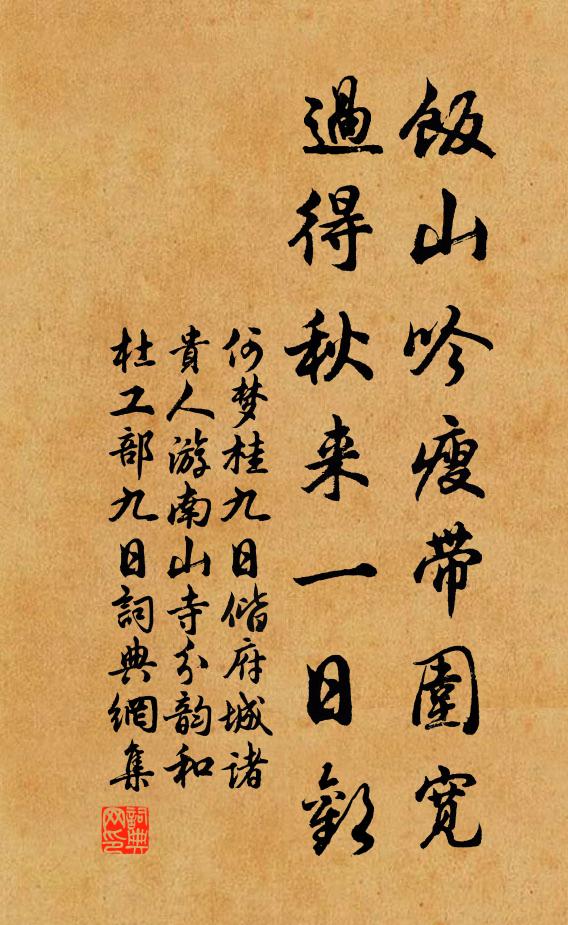 飯山吟瘦帶圍寬
過得秋来一日歡
何梦桂九日偕府城诸
貴人游南山寺分韵和
杜工部九日詞典網集
詞典网印